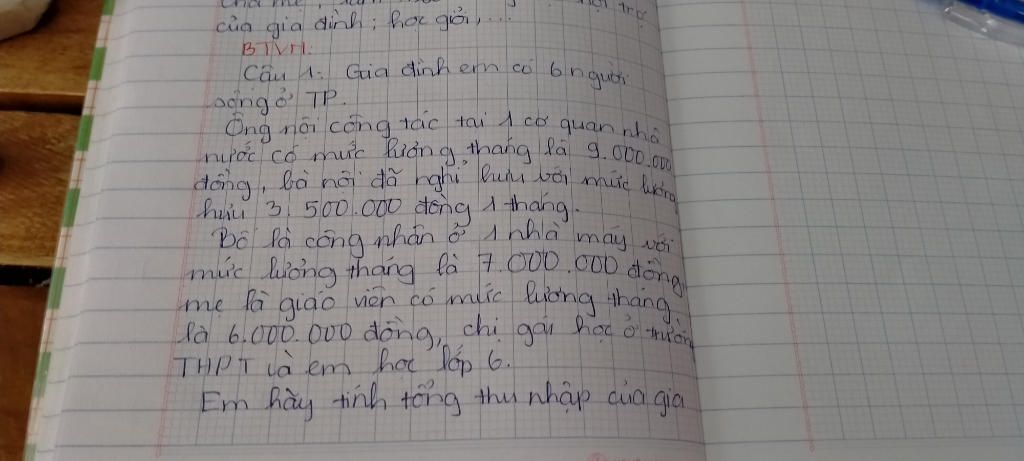 của gia đình; học giỏi,...
BTVN.
Câu 1: Gia đình em có 6 người
sống ở TP.
Ông nội công tác tại 1 cơ quan nhà
nước có mức lương tháng là 9.000.000
đồng, bà nội đã nghỉ hưu với mức lương
hưu 3.500.000 đồng 1 tháng.
Bố là công nhân ở 1 nhà máy với
mức lương tháng là 7.000.000 đồng,
mẹ là giáo viên có mức lương tháng
là 6.000.000 đồng, chị gái học ở trường
THPT và em học lớp 6.
Em hãy tính tổng thu nhập của gia